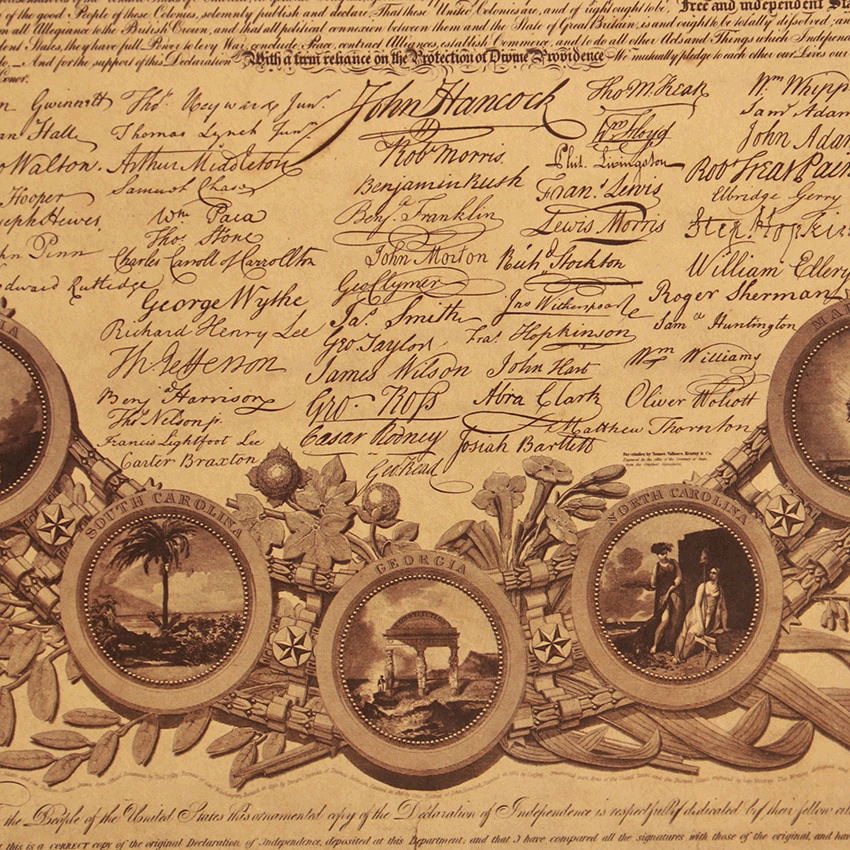 of the good People of these Colonies, solemnly publish and declare, That these United Colonies are, and of right ought to be, Free and independent Sta
m all Allegiance to the British Crown, and that all political connexion between them and the State of Great Britain, is and ought to be totally dissolved; an
dent States, they have full Power to levy War, conclude Peace, contract Alliances, establish Commerce, and to do all other Acts and Things which Independ
And for the support of this Declaration, With a firm reliance on the Protection of Divine Providence We mutually pledge to each other our Lives our
onor.
n Gwinnett Tho.s Heyward Junr. John Hancock Tho M.Kean Wm Whipp
an Hall, Thomas Lynch Junr. Wm Floyd Sam.l Adam
o Walton. Arthur Middleton Rob.t Morris. Phil. Livingston John Adam
Hooper Samuel Chase Benjamin Rush Fran.s Lewis Rob.t Treat Pain
seph Hewes, Wm. Paca Benj.a Franklin Lewis Morris Elbridge Gerry
hn Penn Tho.s Stone John Morton Rich.d Stockton Step. Hopkins
dward Rutledge Charles Carroll of Carrollton Geo Clymer Jno Witherspoon William Ellery
George Wythe Ja.s Smith Fra.s Hopkinson Roger Sherman
Richard Henry Lee Geo Taylor John Hart Sam.el Huntington
Th Jefferson James Wilson Abra Clark Wm Williams
Benj.a Harrison Geo. Ross Matthew Thornton Oliver Wolcott
Tho.s Nelson jr. Caesar Rodney Josiah Bartlett
Francis Lightfoot Lee Geo Read
Carter Braxton
IA
MA
SOUTH CAROLINA
GEORGIA
NORTH CAROLINA
the People of the United States this ornamental copy of the Declaration of Independence is respectfully dedicated by their fellow citi
this is a CORRECT copy of the original Declaration of Independence, deposited at this Department; and that I have compared all the signatures with those of the original, and hav